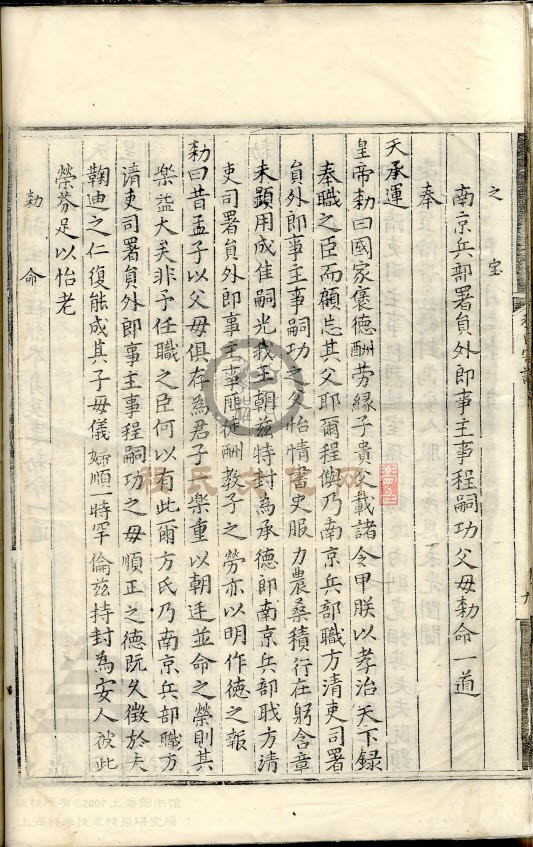 之寶
南京兵部署員外郎事主事程嗣功父母勑命一道
奉
天承運
皇帝勑曰國家褒德酬劳緣子貴父載諸令甲朕以孝治天下録
奉職之臣而顧忘其父耶爾程㒜乃南京兵部職方清吏司署
員外郎事主事嗣功之父怡情書史服力農桑積行在躬含章
未顕用成佳嗣光我王朝兹特封為承德郎南京兵部戢方清
吏司署員外郎事主事酬教子之勞亦以明作徳之報
勑曰昔孟子以父毋俱存為君子樂重以朝廷並命之榮則其
楽益大矣非予任職之臣何以有此爾方氏乃南京兵部職方
清吏司署員外郎事主事程嗣功之毋順正之德旣久徵於夫
鞠迪之仁復能成其子毋儀婦順一時罕倫兹持封為安人彼此
榮芬足以怡老
勑命
程氏文化网
版权所有©2007上海图书馆
上海科学技术情报研究所